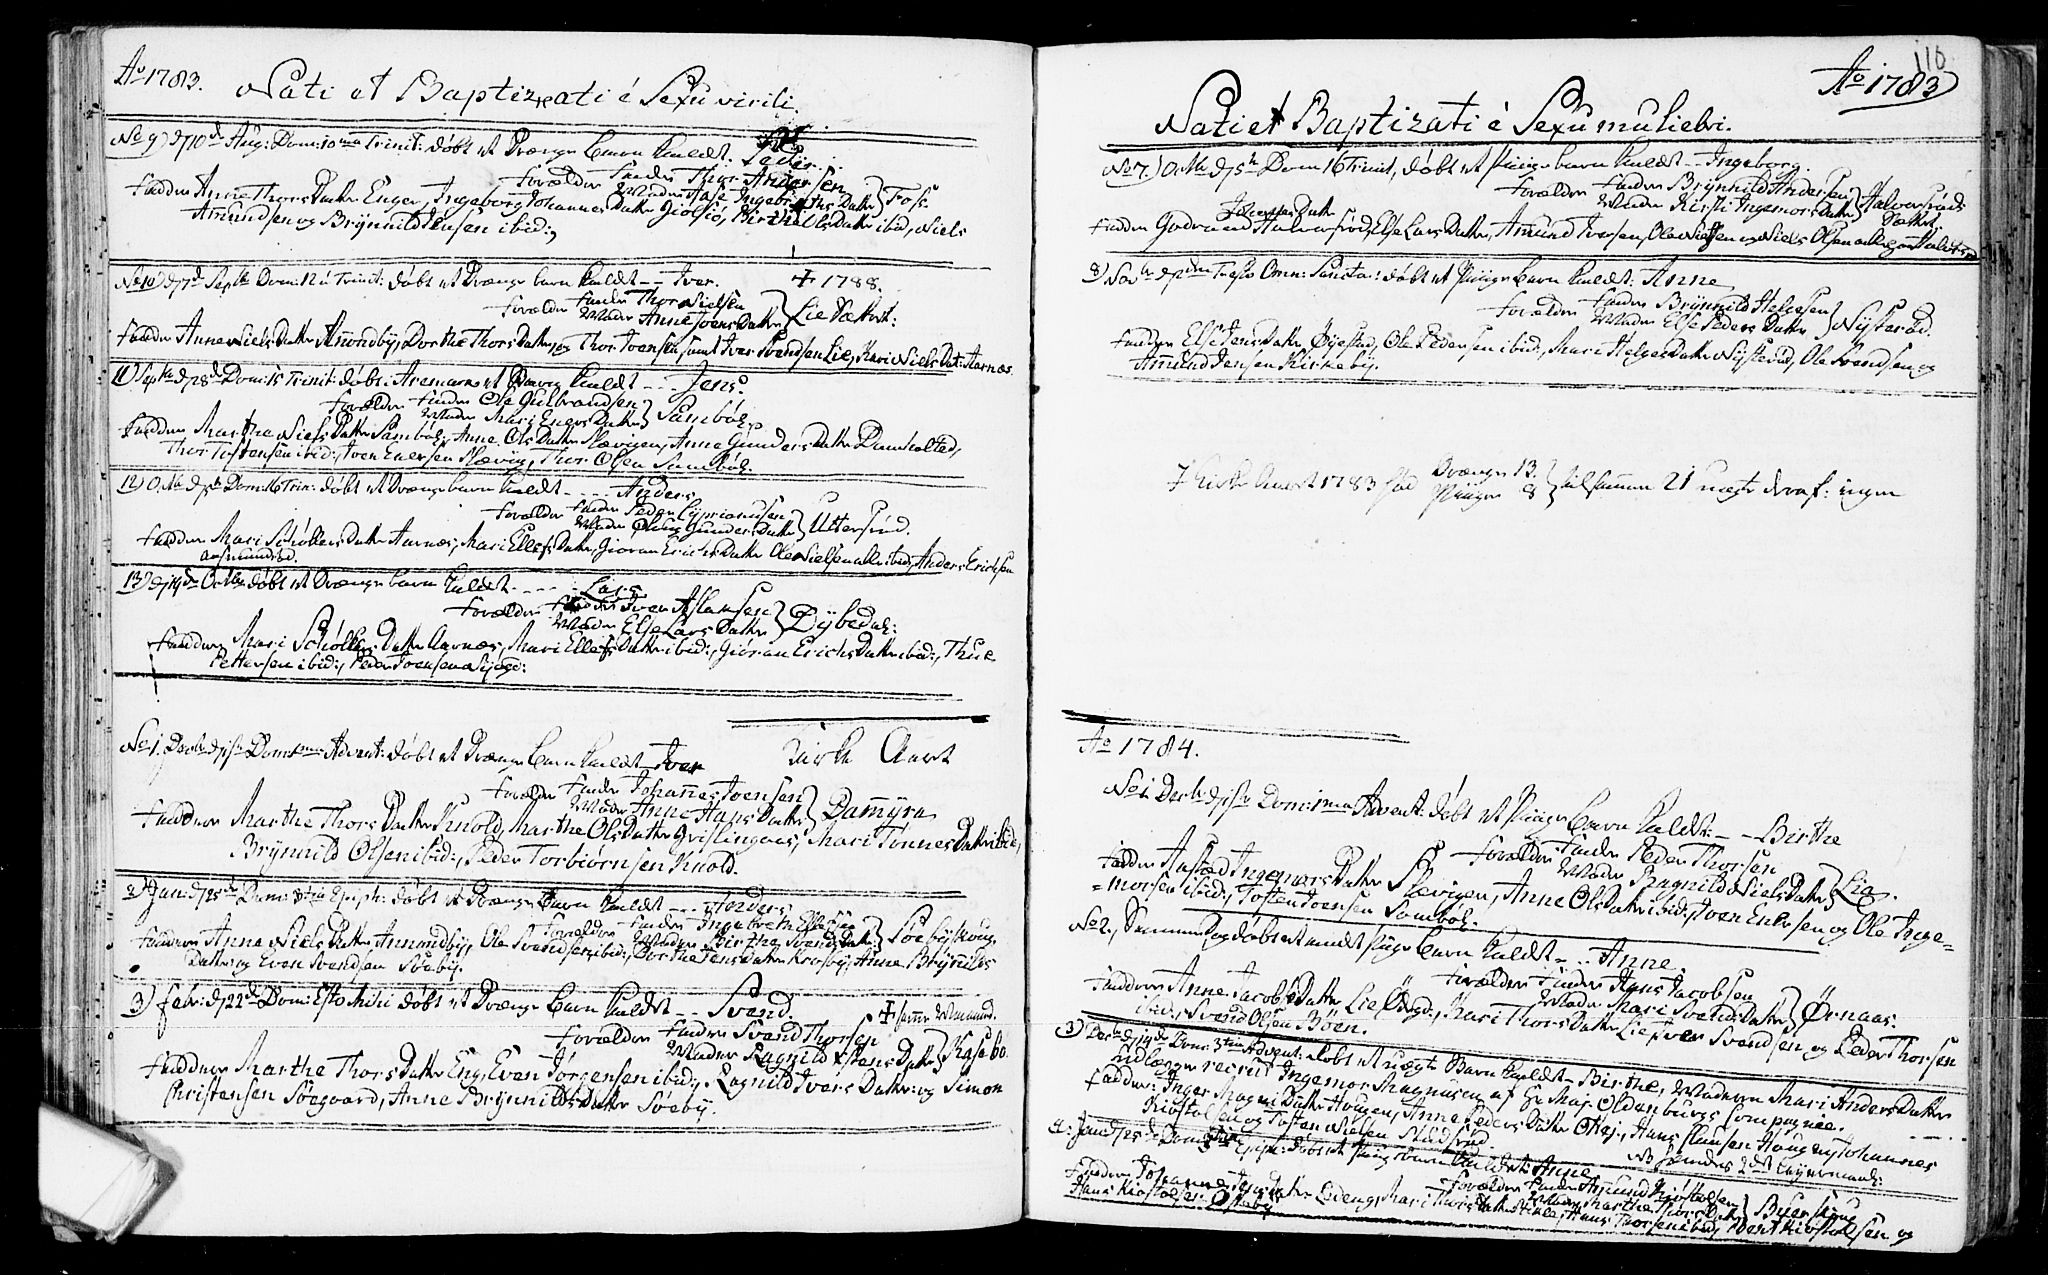 Ao 1783.
Nati et Baptizati é Sexu virili.
No 9) d 10d Aug: Dom: 10ma Trinit: døbt et Drænge barn kaldt. Peder
Forældre Fander Thor Andersen
Moder Aase Ingebrethsdatter } Foss
Faddere Anne Thorsdatter Enger, Ingeborg Johannesdatter Giølsiø, Birthe Olsdatter ibid, Niels
Amundsen og Brÿnnild Jensen ibid:,
No 10) d 7d Septb Dom: 12 á Trinit: døbt et Drænge barn kaldt -- Iver. + 1788.
Forældre Fander Thor Nielsen
Moder Anne Joens Datter } Lie
Faddere Anne Niels Datter Amondbÿ, Dorthe Thors Datter, og Thor Joensen samt Iver Svendsen Lie, Kari Niels Dat: Aarnæs.
11) Septb d 28d Dom: 15 Trinit: døbt: Aremarc et Dreng kaldt -- Jens.
Forældre Fander Ole Gulbrandsen
Moder Mari Eners Datter } Sambøl
Faddere Marthe Niels Datter Sambøl, Anne Ols Datter Skevigen, Anne Gunders Datter Damholted,
Thor Tostensen ibid:, Joen Enersen Skevig, Thor Olsen Sambøl.
12) Octb d 5h Dom: 16 Trin: døbt et Drænge barn kaldt -- Anders
Forældre Fander Peder Ciprianusen
Moder Gunders Datter } Uttersrud.
Faddere Mari Schøllers Datter Aarnæs, Mari Ellefs Datter, Giøran Erichs Datter Ole Nielsen alle ibid, Anders Erichsen
13) d 19de Octb døbt et Drænge barn kaldt ---- Lars
Forældre Fander Iver Aslaksen
Moder Else Lars Datter } Dÿbedal:
Faddere Mari Schøllers Datter Aarnæs, Mari Ellefs Datter ibid:, Giøran Erichs Datter ibid:, Thue
Pettersen ibid:, Peder Joensen
Kirke Aaret
No 1. Decb d 1ste Dom: 1ma Advent: døbt et Drænge barn kaldt Iver
Forældre Fander Johannes Joensen
Moder Anne Hans Datter } Damÿra
Faddere Marthe Thors Datter Knold, Marthe Ols Datter Grislingaas, Mari Tønnes Datter ibid,
Brÿnnild Olsen ibid:, Peder Torbiørnsen Knold.
2) Jan: d 25d Dom: 3tia Epiph: døbt et Drænge Barn kaldt --- Anders
Forældre Fander Ingebreth Ellefsen
Moder Birthe Svends Datter } Søebÿskoug.
Faddere Anne Niels Datter Amondbÿ, Ole Svendsen ibid:, Dorthe Jens Datter Krosbÿ, Anne Brÿnnilds
Datter og Even Svendsen Søebÿ.
3) Febr: d 22d Dom: Esto Mihi døbt et Drænge Barn kaldt -- Svend. + samme Maaned.
Forældre Fander Svend Thorsen
Moder Ragnild Datter } Kasebo
Faddere Marthe Thors Datter Eng, Even Jørgensen ibid:, Ragnild Ivers Datter: og Simon
Christensen Søegaard, Anne Brÿnnilds Datter Søebÿ.
110
Ao 1783
Nati et Baptizati é Sexu muliebri.
No 7.) Octb d 5h Dom 16 Trinit, døbt et Pige barn kaldt -- Ingeborg
Forældre Fander Brÿnnild Andersen
Moder Kirsti Ingemors Datter } Halvorsrød
Johannes Datter
Faddere Gudru Halvorsrød, Else Lars Datter, Amund Iversen, Ole Nielsen og Niels Olsen alle
8) Novb d 2den Festo Omn: Sanctor: døbt et Pige barn kaldt: Anne
Forældre Fander Brÿnnild Helgesen
Moder Else Peders Datter } Nÿsterud.
Faddere Else Jens Datter Øÿestad, Ole Pedersen ibid:, Mari Helges Datter Nÿsterud, Ole Svendsen og
Amund Jensen Kirkebÿ.
I Kirke Aaret 1783 født Drænger 13.
Piiger 8 } tilsammen 21 uægte deraf: ingen
Ao 1784.
No 1. Decb d 1ste Dom: 1ma Advent: døbt et Pige barn kaldt: -- Birthe
Forældre Fander Peder Thorsen
Moder Ragnild Niels Datter } Lie.
Faddere Anstæd Ingemors Datter Skevigen, Anne Ols Datter ibid:, Joen Enersen og Ole Inge=
=morsen ibid:, Tosten Joensen Sambøl.
No 2, Samme Dag døbt et andet Pige barn kaldt -- Anne
Forældre Fander Hans Jacobsen
Moder Mari Svends Datter } Ørnaas.
Faddere Anne Jacobs Datter Lie Kari Thors Datter Lie, Iver Svendsen, og Peder Thorsen
ibid:, Svend Olsen Bøen.
3) Decb d 14de Dom: 3tia Advent: døbt et uægte Barn kaldt -- Birthe, Moderen Mari Anders Datter
udlægger recrut Ingemor Magnusen af Hr Maj: Oldenburgs Compagnie.
Faddere: Inger Magni Datter Hougen, Anne Peders Datter Okej, Hans Hansen Hougen, Johannes
Kiøstolsen og Tosten Nielsen Stuesrud NB hendes 2det Leÿermaal:
4: Jan d 25de Dom: 3tia Epiph: døbt et Pige barn kaldet: Anne
Forældre Fander Amund Kiøstolsen
Moder Marthe Thors Datter } Buerskoug
Faddere Johanne Jens Datter Lodeng, Mari Thors Datter Hiale, Hans Thorsen ibid, Bent Kiøstolsen og
Hans Kiøstolsen Østebÿ